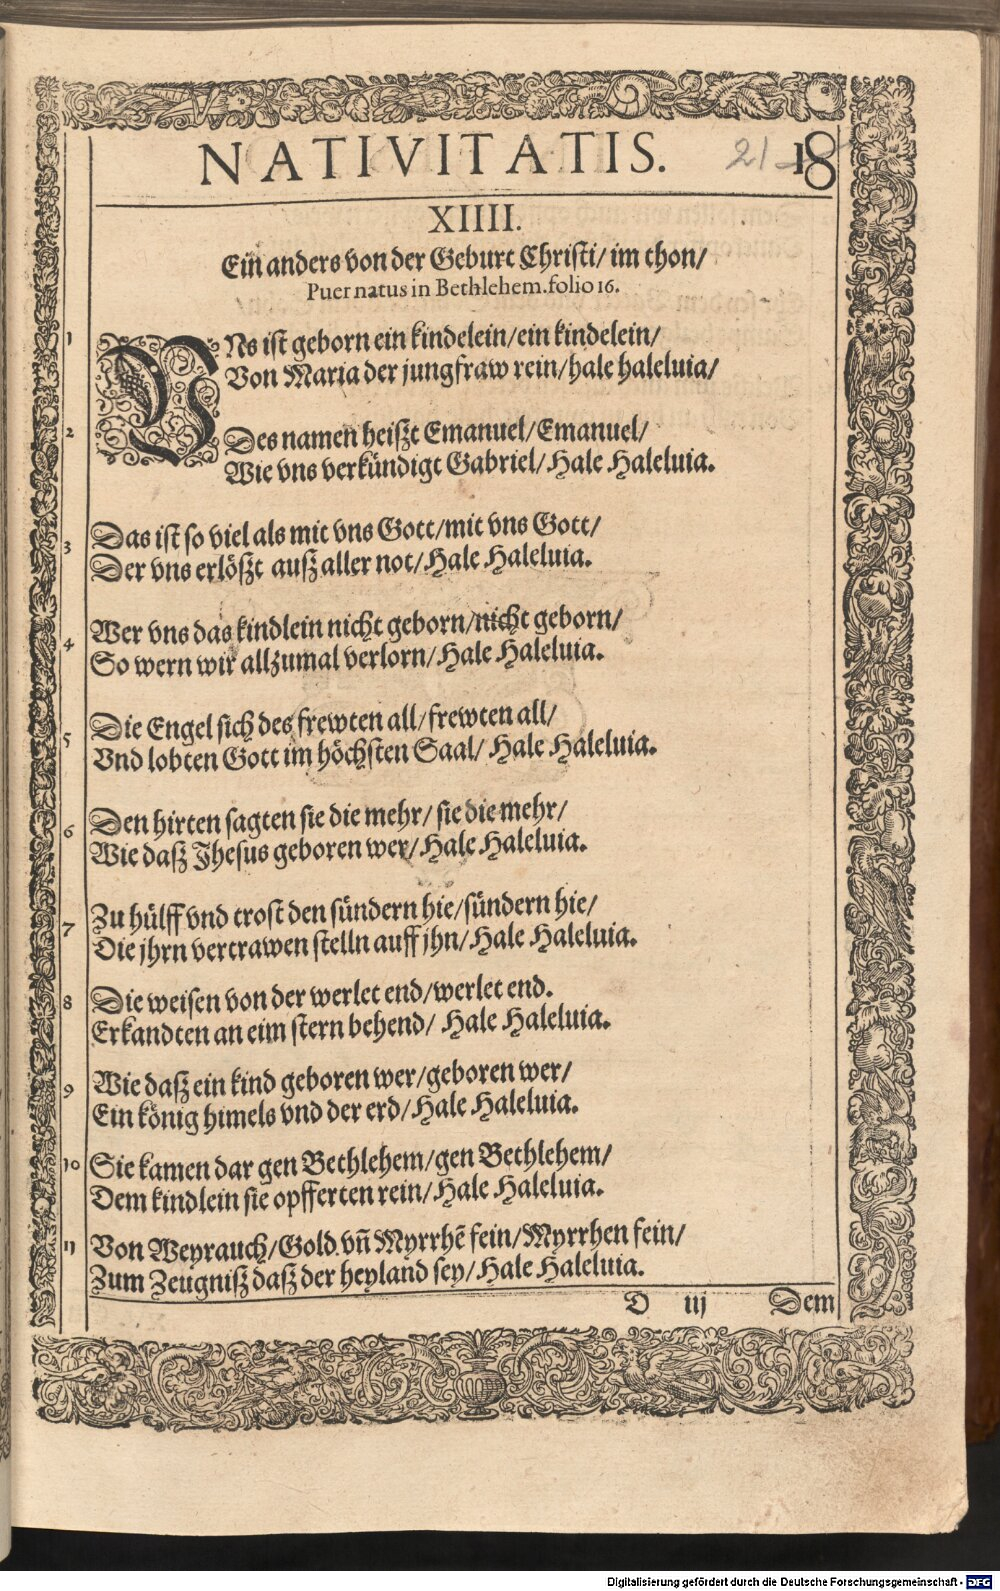 NATIVITATIS. 21 18
XIIII.
Ein anders von der Geburt Christi/ im thon/
Puer natus in Bethlehem. folio 16.
1 VNs ist geborn ein kindelein/ein kindelein/
Von Maria der jungfraw rein/hale haleluia/
2 Des namen heißt Emanuel/Emanuel/
Wie vns verkündigt Gabriel/Hale Haleluia.
3 Das ist so viel als mit vns Gott/mit vns Gott/
Der vns erlößt auß aller not/Hale Haleluia.
4 Wer vns das kindlein nicht geborn/nicht geborn/
So wern wir allzumal verlorn/Hale Haleluia.
5 Die Engel sich des frewten all/frewten all/
Vnd lobten Gott im höchsten Saal/ Hale Haleluia.
6 Den hirten sagten sie die mehr/ sie die mehr/
Wie daß Jhesus geboren wer/Hale Haleluia.
7 Zu hülff vnd trost den sündern hie/sündern hie/
Die jhrn vertrawen stelln auff jhn/Hale Haleluia.
8 Die weisen von der werlet end/werlet end.
Erkandten an eim stern behend/ Hale Haleluia.
9 Wie daß ein kind geboren wer/geboren wer/
Ein könig himels vnd der erd/Hale Haleluia.
10 Sie kamen dar gen Bethlehem/gen Bethlehem/
Dem kindlein sie opfferten rein/Hale Haleluia.
11 Von Weyrauch/Gold vñ Myrrhẽ fein/Myrrhen fein/
Zum Zeugniß daß der heyland sey/Hale Haleluia.
D iij Dem
Digitalisierung gefördert durch die Deutsche Forschungsgemeinschaft - DFG